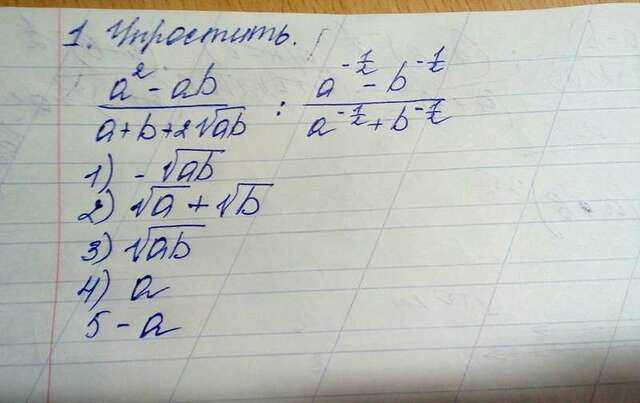 1. Упростить.
(a² - ab)/(a + b + 2√ab) : (a^(-1/2) - b^(-1/2))/(a^(-1/2) + b^(-1/2))
1) - √ab
2) √a + √b
3) √ab
4) a
5 - a